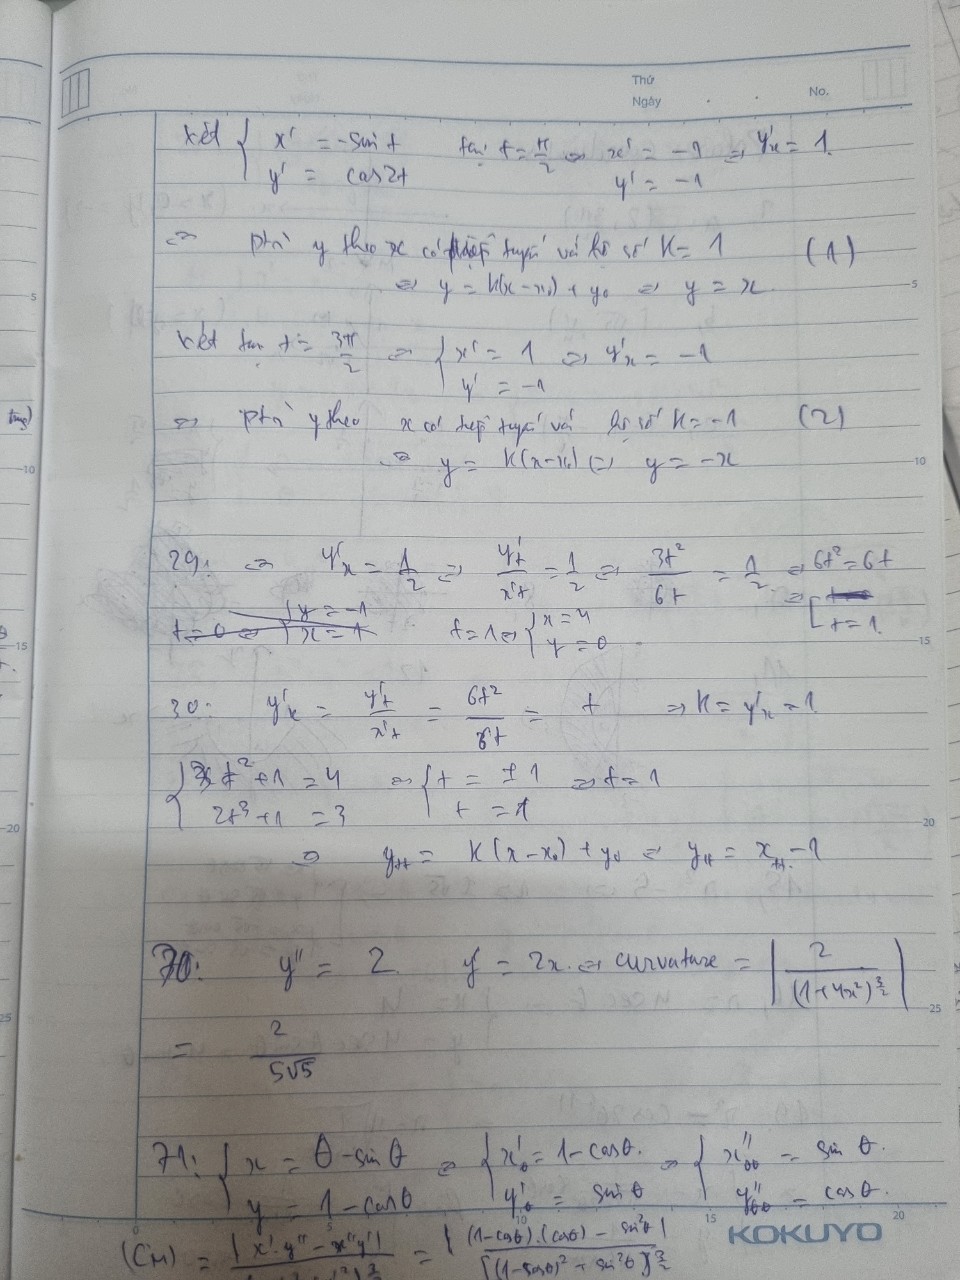 Thứ
Ngày
No.
xét { x' = -sin t tại t = π/2 => x' = -1 => y'x = 1
y' = cos2t y' = -1
=> ptr y theo x có tiếp tuyến với hệ số K = 1 (1)
<=> y = K(x-x₀) + y₀ <=> y = x
xét tại t = 3π/2 => { x' = 1 => y'x = -1
y' = -1
=> ptr y theo x có tiếp tuyến với hệ số K = -1 (2)
=> y = K(x-x₀) <=> y = -x
29: => y'x = 1/2 <=> y't/x't = 1/2 <=> 3t²/6t = 1/2 => 6t² = 6t
t = 1 => { x = 4 <=> [ t = 1
y = 0
30: y'x = y't/x't = 6t²/6t = t => K = y'x = 1
{ 3t² + 1 = 4 <=> { t = ±1 => t = 1
2t³ + 1 = 3 t = 1
=> ytt = K(x-x₀) + y₀ <=> ytt = xtt - 1
70: y'' = 2 y' = 2x => curvature = | 2/(1+4x²)^3/2 |
= 2/5√5
71: { x = θ - sin θ => { x'θ = 1 - cosθ => { x''θθ = sin θ
y = 1 - cosθ y'θ = sin θ y''θθ = cosθ
(CM) = |x'.y'' - x''y'| = |(1-cosθ).(cosθ) - sin²θ|
[(1-cosθ)² + sin²θ]^3/2
KOKUYO